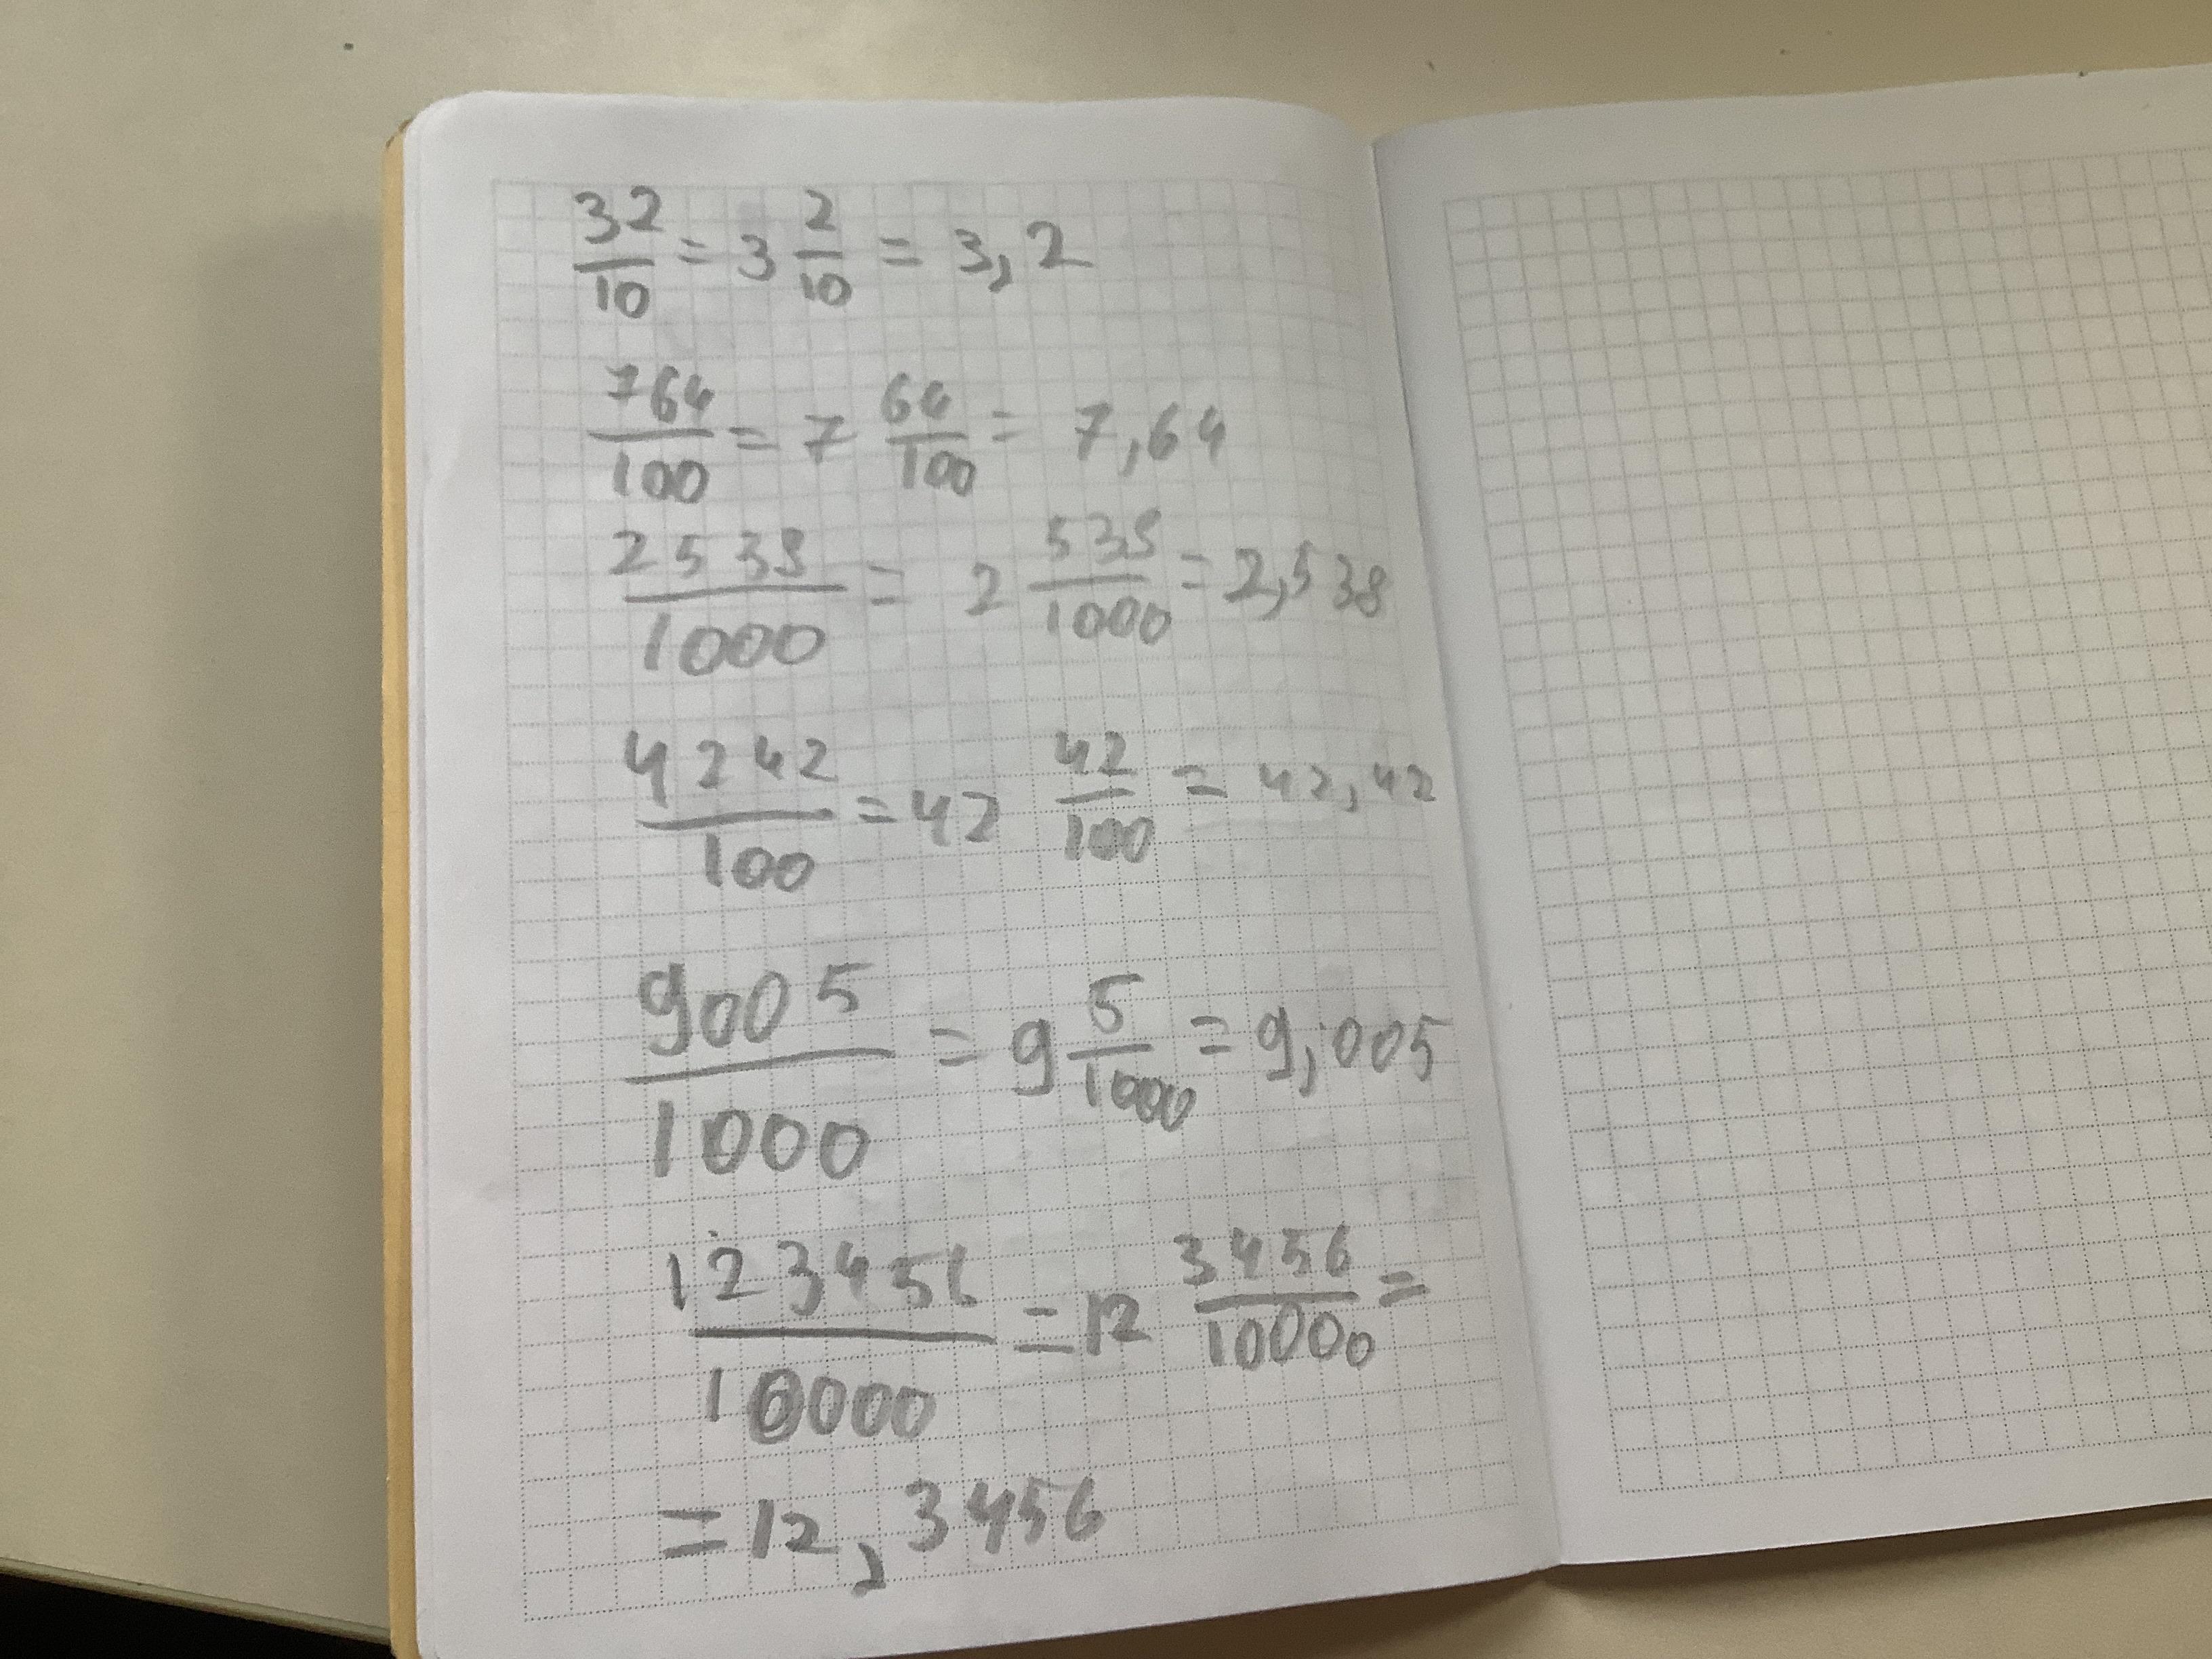 32/10 = 3 2/10 = 3,2
764/100 = 7 64/100 = 7,64
2538/1000 = 2 538/1000 = 2,538
4242/100 = 42 42/100 = 42,42
9005/1000 = 9 5/1000 = 9,005
123456/10000 = 12 3456/10000 =
= 12,3456